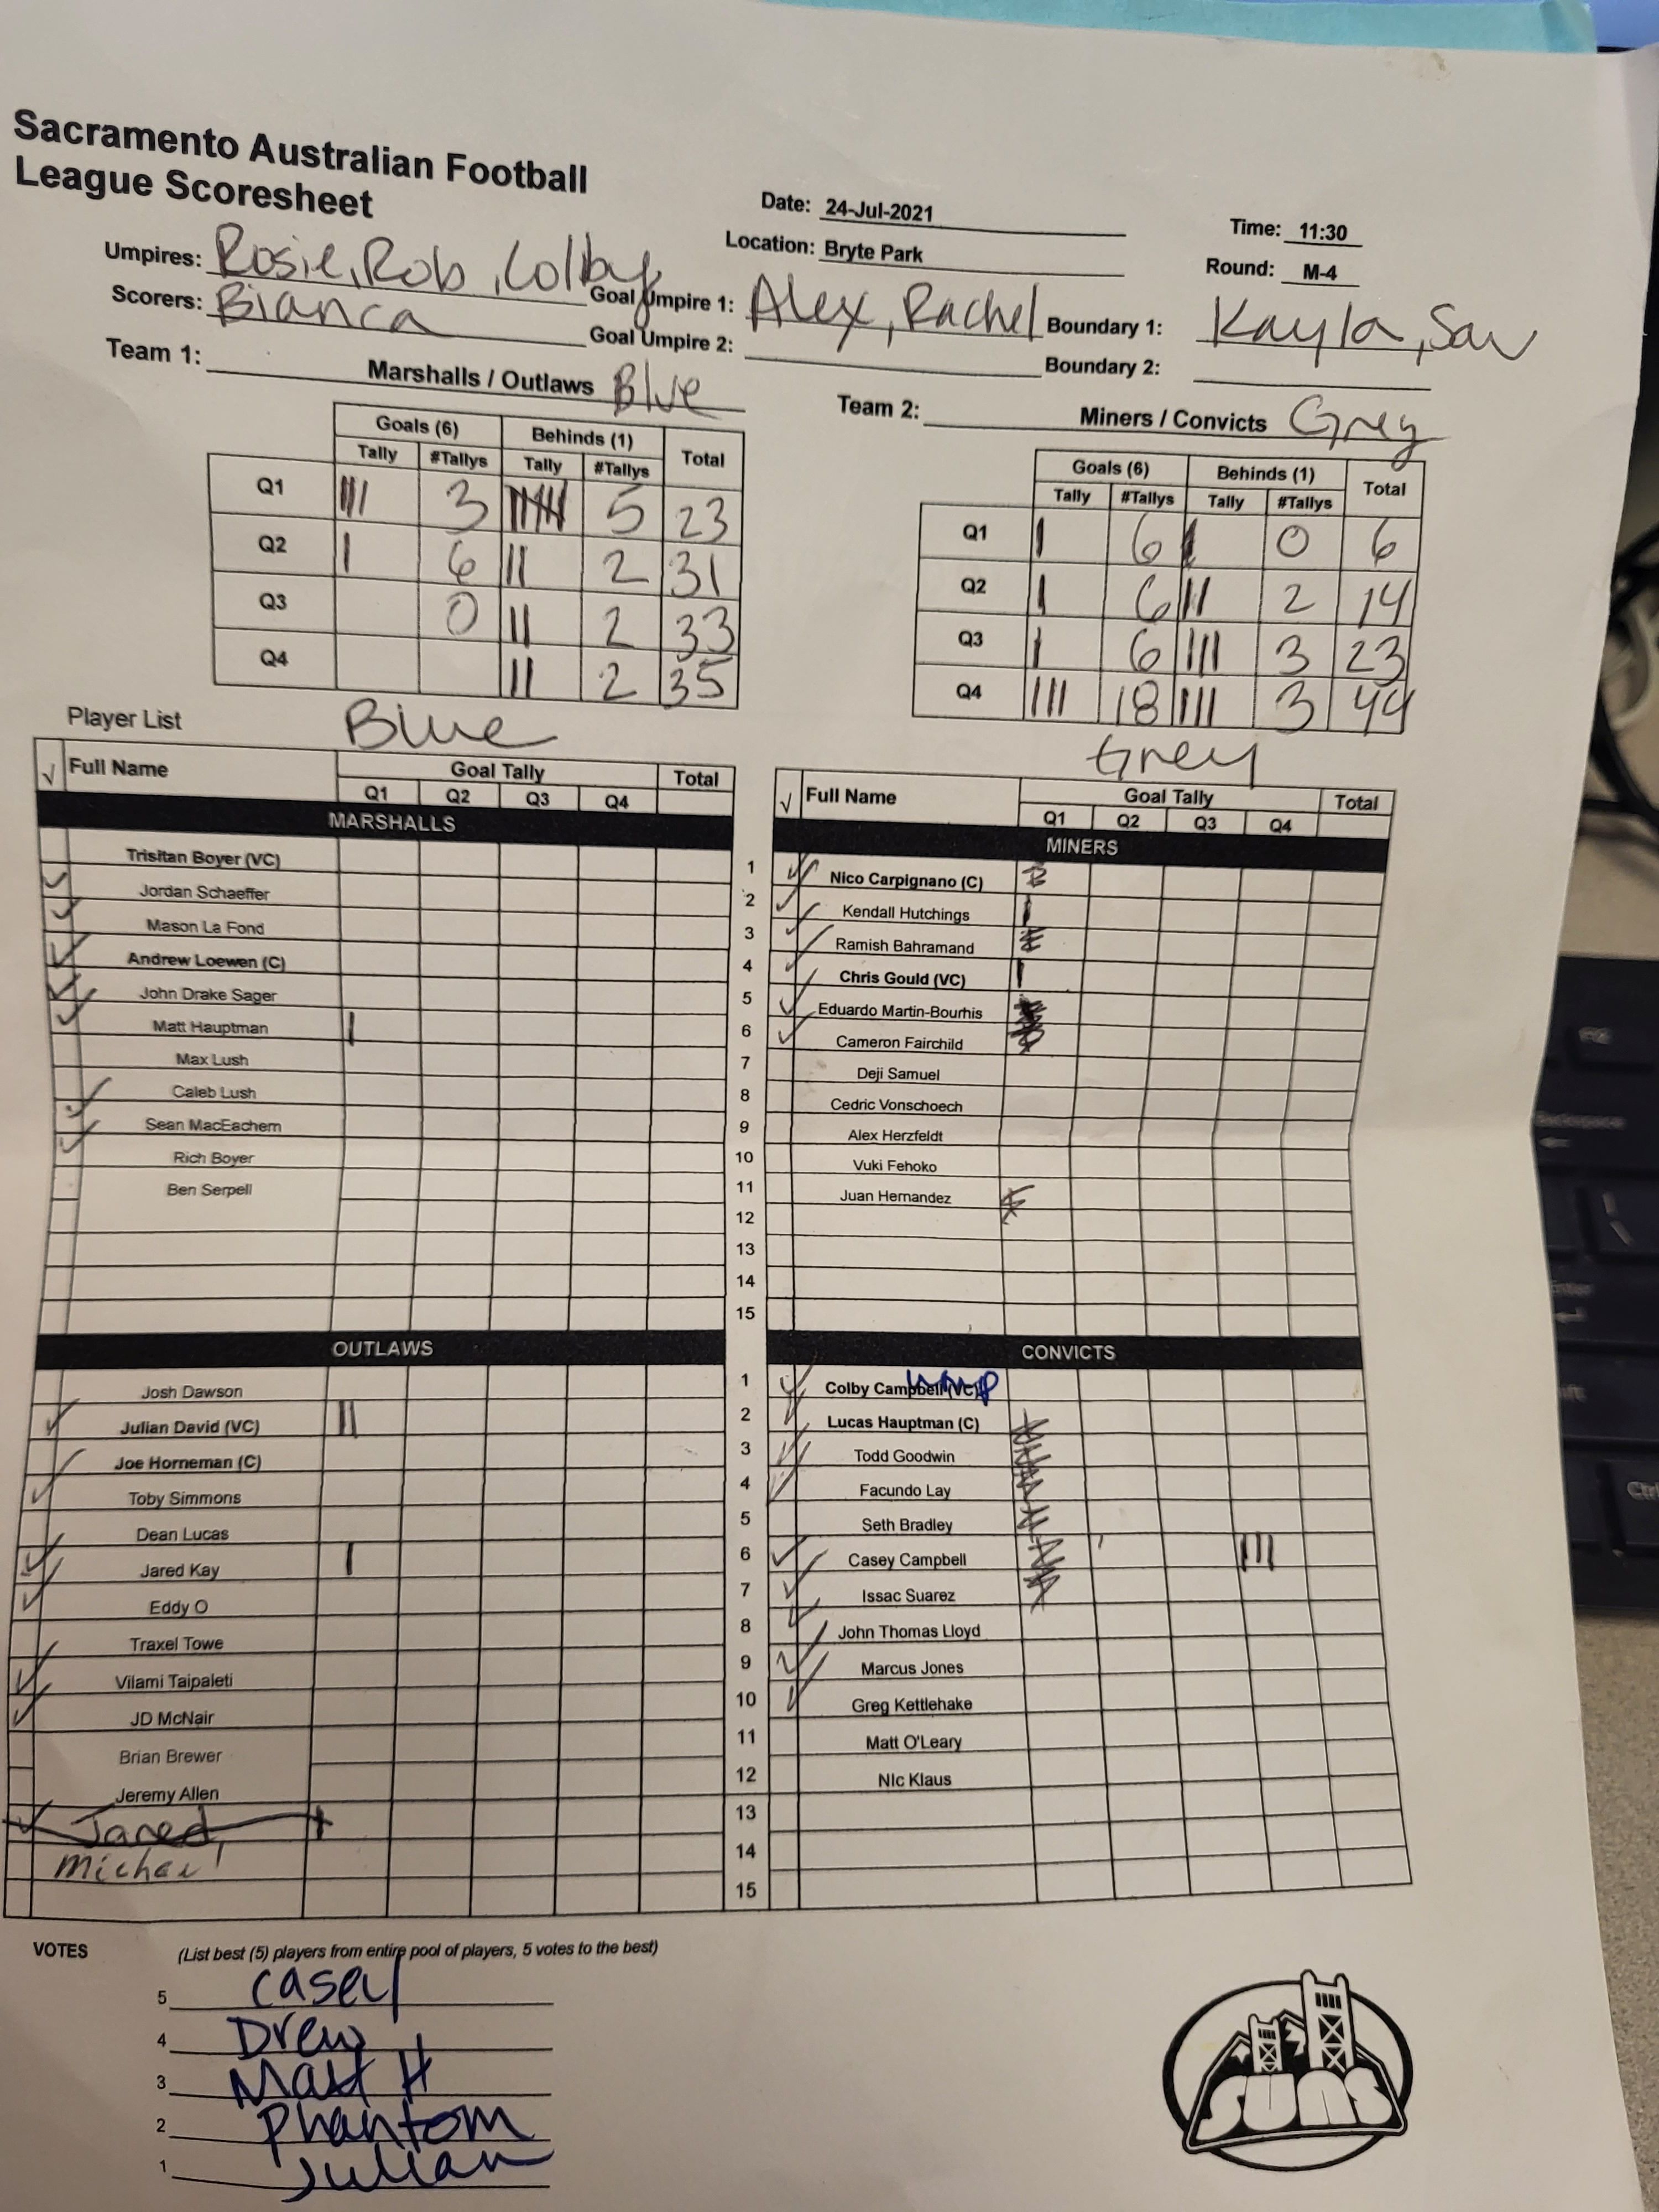 Sacramento Australian Football
League Scoresheet
Date: 24-Jul-2021 Time: 11:30
Location: Bryte Park Round: M-4
Umpires: Rosie, Rob, Colby
Scorers: Bianca Goal Umpire 1: Alex, Rachel Boundary 1: Kayla, Sav
Goal Umpire 2: Boundary 2:
Team 1: Marshalls / Outlaws Blue
Team 2: Miners / Convicts Grey
Goals (6) Behinds (1) Total
Tally #Tallys Tally #Tallys
Q1 3 5 23
Q2 6 2 31
Q3 0 2 33
Q4 2 35
Goals (6) Behinds (1) Total
Tally #Tallys Tally #Tallys
Q1 6 0 6
Q2 6 2 14
Q3 6 3 23
Q4 18 3 44
Player List Blue
√ Full Name Goal Tally Total
Q1 Q2 Q3 Q4
MARSHALLS
Trisitan Boyer (VC)
Jordan Schaeffer
Mason La Fond
Andrew Loewen (C)
John Drake Sager
Matt Hauptman
Max Lush
Caleb Lush
Sean MacEachern
Rich Boyer
Ben Serpell
Grey
√ Full Name Goal Tally Total
Q1 Q2 Q3 Q4
MINERS
1 Nico Carpignano (C)
2 Kendall Hutchings
3 Ramish Bahramand
4 Chris Gould (VC)
5 Eduardo Martin-Bourhis
6 Cameron Fairchild
7 Deji Samuel
8 Cedric Vonschoech
9 Alex Herzfeldt
10 Vuki Fehoko
11 Juan Hernandez
12
13
14
15
OUTLAWS
Josh Dawson
Julian David (VC)
Joe Horneman (C)
Toby Simmons
Dean Lucas
Jared Kay
Eddy O
Traxel Towe
Vilami Taipaleti
JD McNair
Brian Brewer
Jeremy Allen
Jared
Michael
CONVICTS
1 Colby Campbell (VC) ump
2 Lucas Hauptman (C)
3 Todd Goodwin
4 Facundo Lay
5 Seth Bradley
6 Casey Campbell
7 Issac Suarez
8 John Thomas Lloyd
9 Marcus Jones
10 Greg Kettlehake
11 Matt O'Leary
12 NIc Klaus
13
14
15
VOTES (List best (5) players from entire pool of players, 5 votes to the best)
5 Casey
4 Drew
3 Matt H
2 Phantom
1 Julian
SUNS